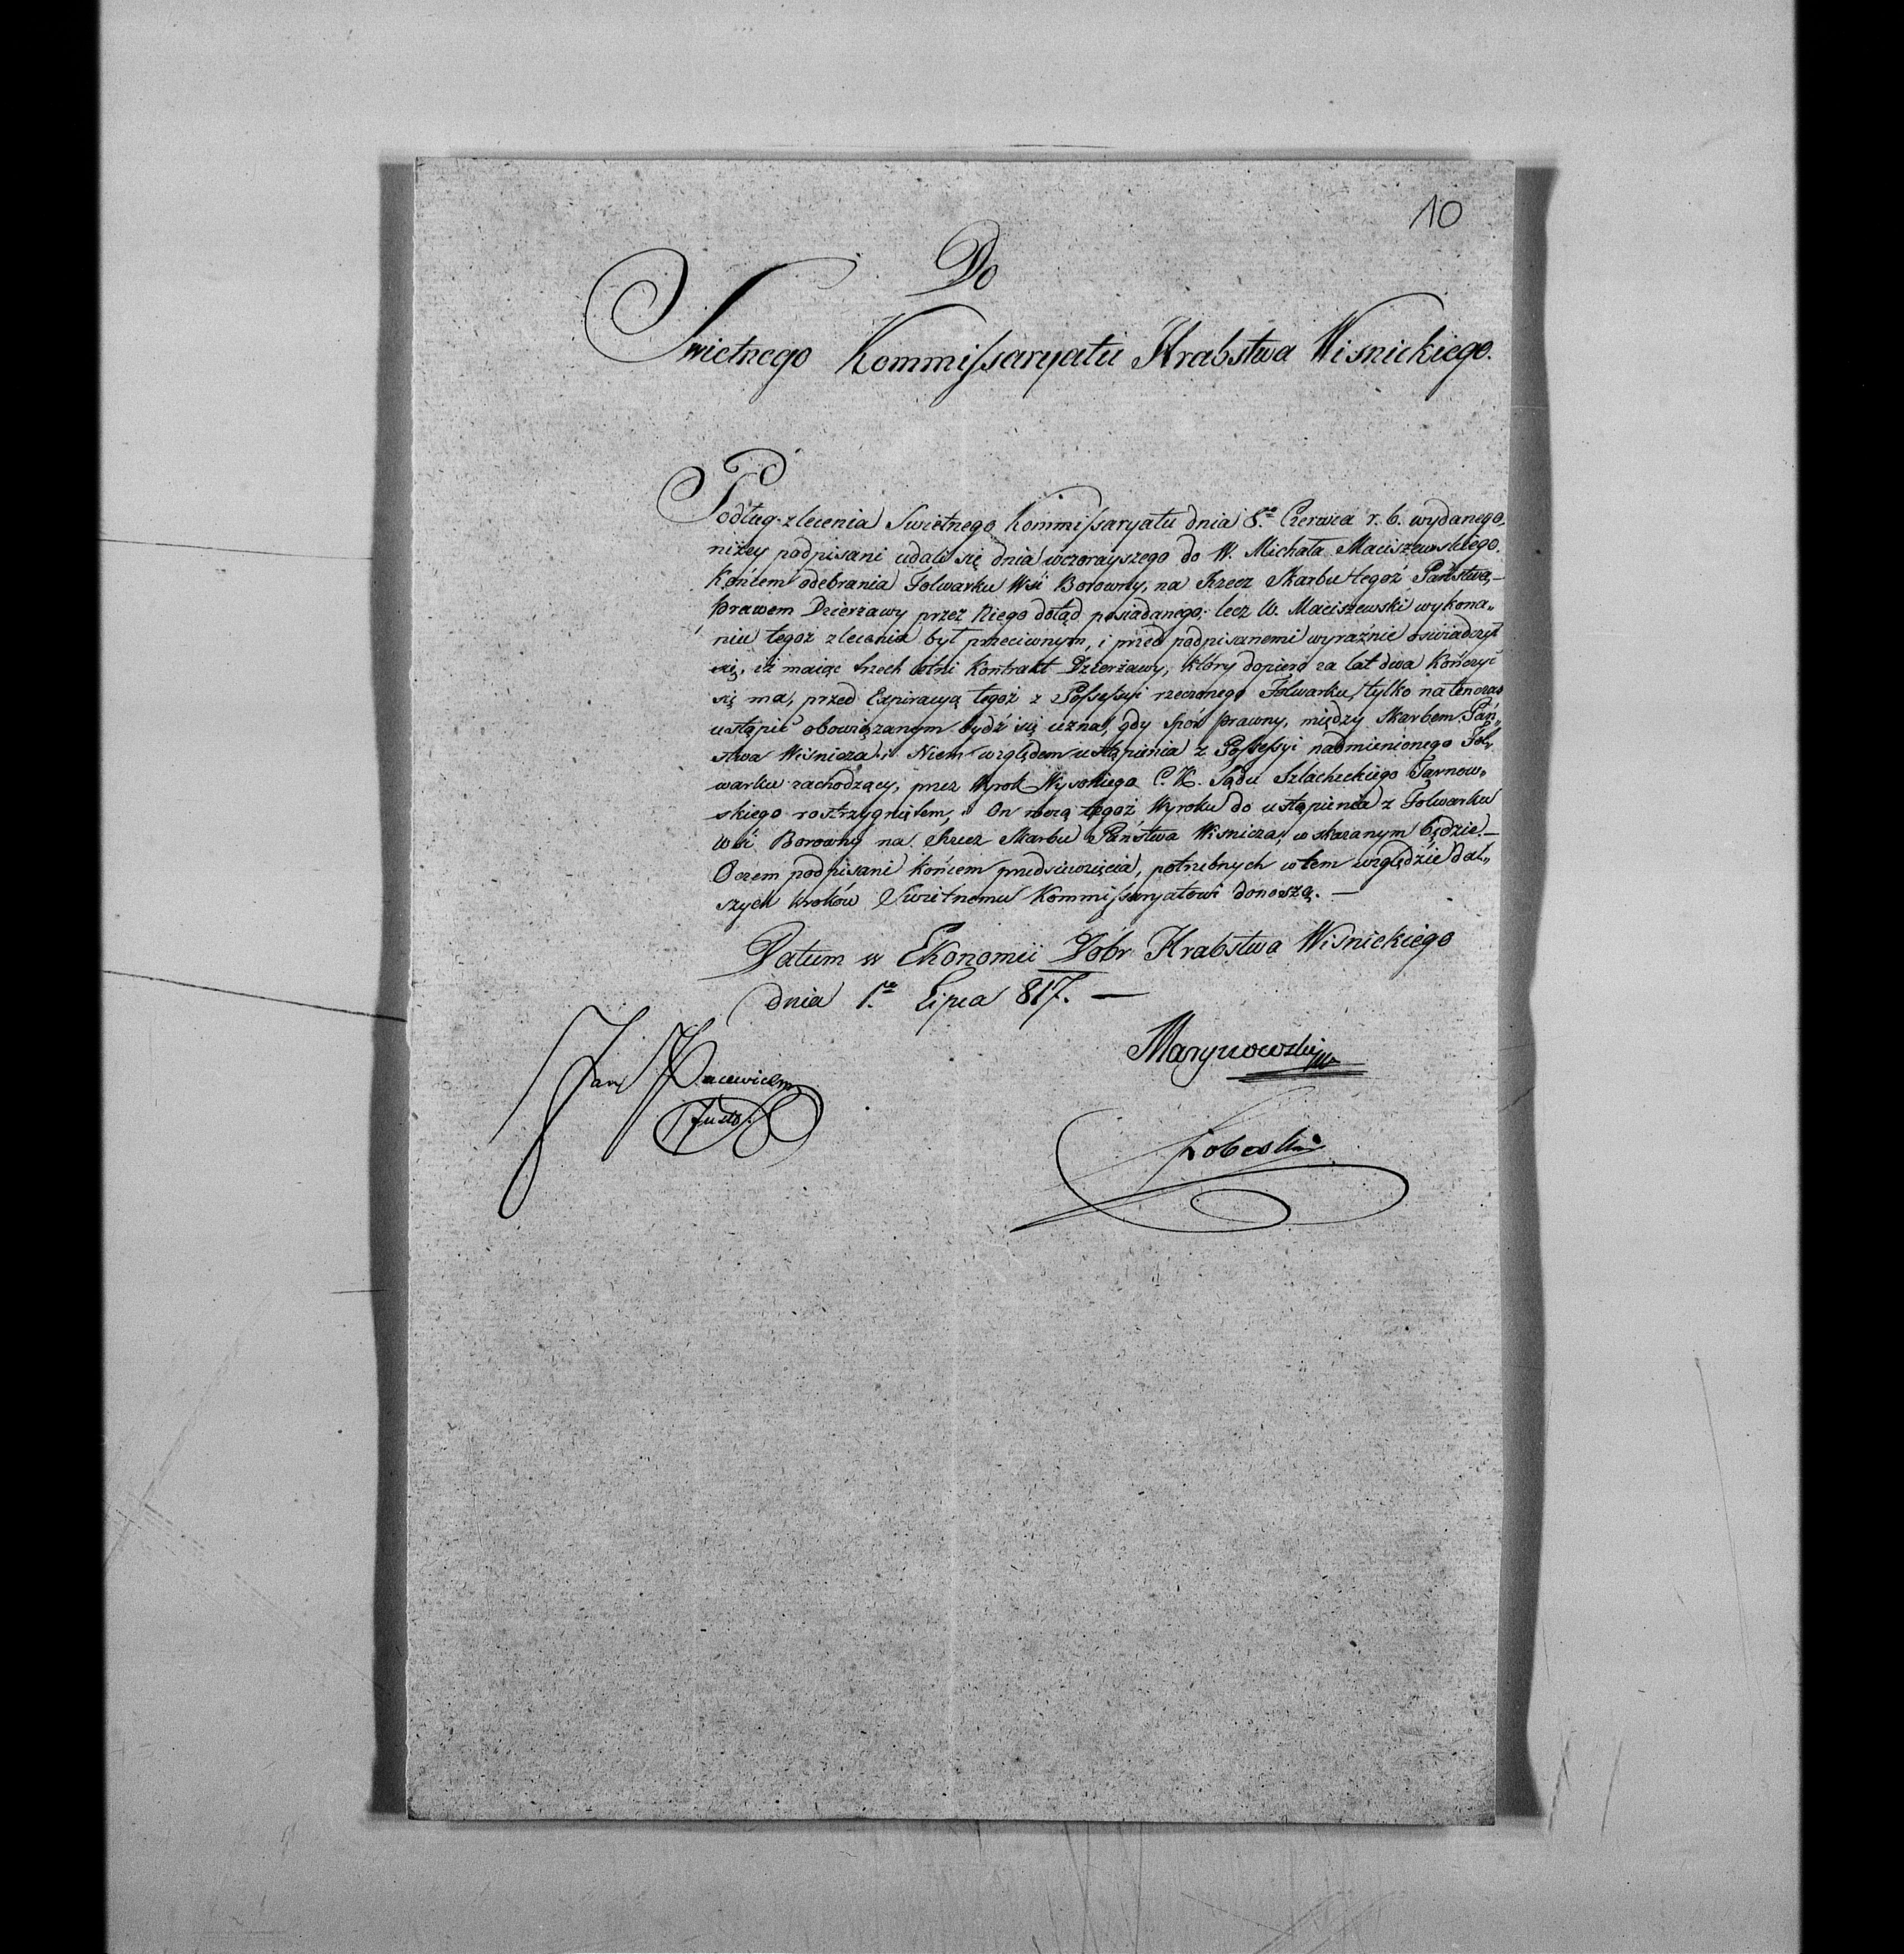 10
Do
Swietnego Kommissaryatu Hrabstwa Wisnickiego.
Podług zlecenia Swietnego Kommissaryatu dnia 8.go Czerwca r. b. wydanego,
niżey podpisani udali się dnia wczorayszego do W. Michała Maciszewskiego,
końcem odebrania Folwarku Wsi Borowny, na Rzecz Skarbu tegoż Państwa,
prawem Dzierzawy przez Niego dotąd posiadanego; lecz W. Maciszewski wykona„
niu tegoż zlecenia był przeciwnym, i przed podpisanemi wyraźnie oświadczył
się, iż maiąc trzech letni Kontrakt Dzierżawy, który dopiero za lat dwa kończyć
się ma, przed Expiracyą tegoż z Possessyi rzeczonego Folwarku, tylko natenczas
ustąpić obowiązanym bydź się uzna, gdy spór prawny, między Skarbem Pań„
stwa Wisnicza i Niem względem ustąpienia z Possessyi nadmienionego Fol„
warku zachodzący, przez Wyrok Wysokiego C. K. Sądu Szlacheckiego Tarnow„
skiego rostrzygniętem, i On mocą tegoż Wyroku do ustąpienia z Folwarku
Wsi Borowny na Rzecz Skarbu Państwa Wisnicza, wskazanym będzie. —
Oczem podpisani końcem przedsiewzięcia, potrzebnych wtem względzie dal„
szych kroków Swietnemu Kommissaryatowi donoszą. —
Datum w Ekonomii Dobr Hrabstwa Wisnickiego
dnia 1.go Lipca 817. —
Jan